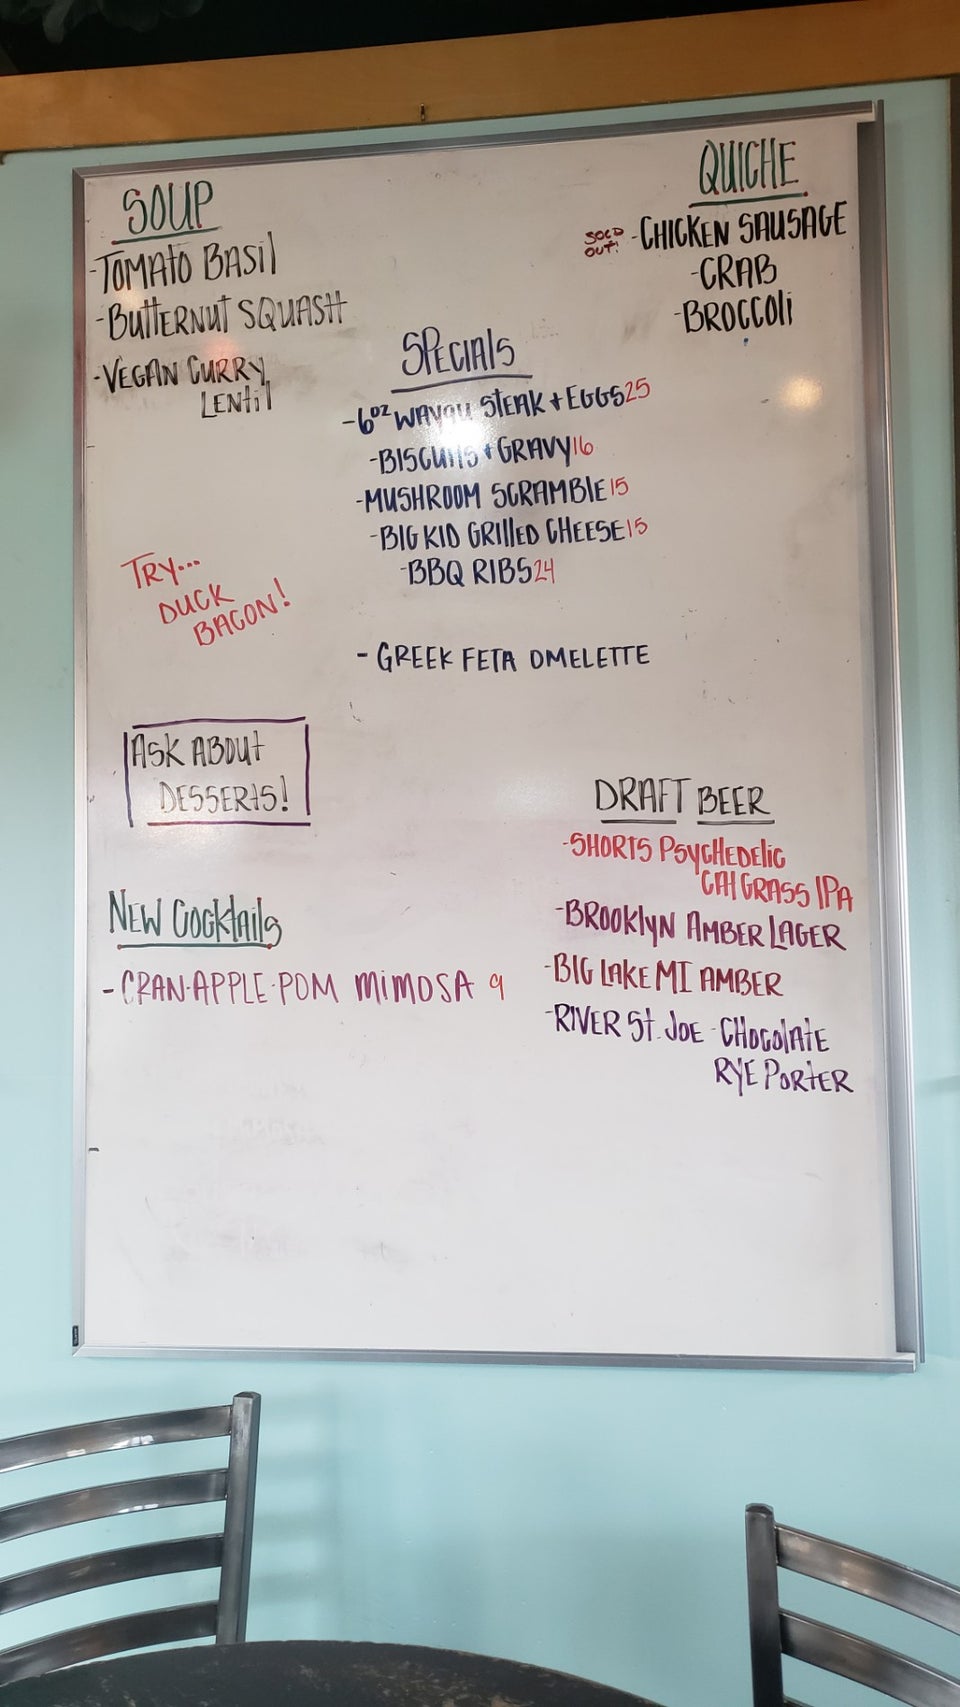 SOUP
-TOMATO BASIL
-BUTTERNUT SQUASH
-VEGAN CURRY
LENTIL
QUICHE
SOLD
OUT!
-CHICKEN SAUSAGE
-CRAB
-BROCCOLI
SPECIALS
-6oz WAYGU STEAK + EGGS 25
-BISCUITS + GRAVY 16
-MUSHROOM SCRAMBLE 15
-BIG KID GRILLED CHEESE 15
-BBQ RIBS 24
- GREEK FETA OMELETTE
TRY...
DUCK
BACON!
ASK ABOUT
DESSERTS!
NEW COCKTAILS
- CRAN-APPLE-POM MIMOSA 9
DRAFT BEER
-SHORTS PSYCHEDELIC
CAT GRASS IPA
-BROOKLYN AMBER LAGER
-BIG LAKE MI AMBER
-RIVER ST. JOE - CHOCOLATE
RYE PORTER